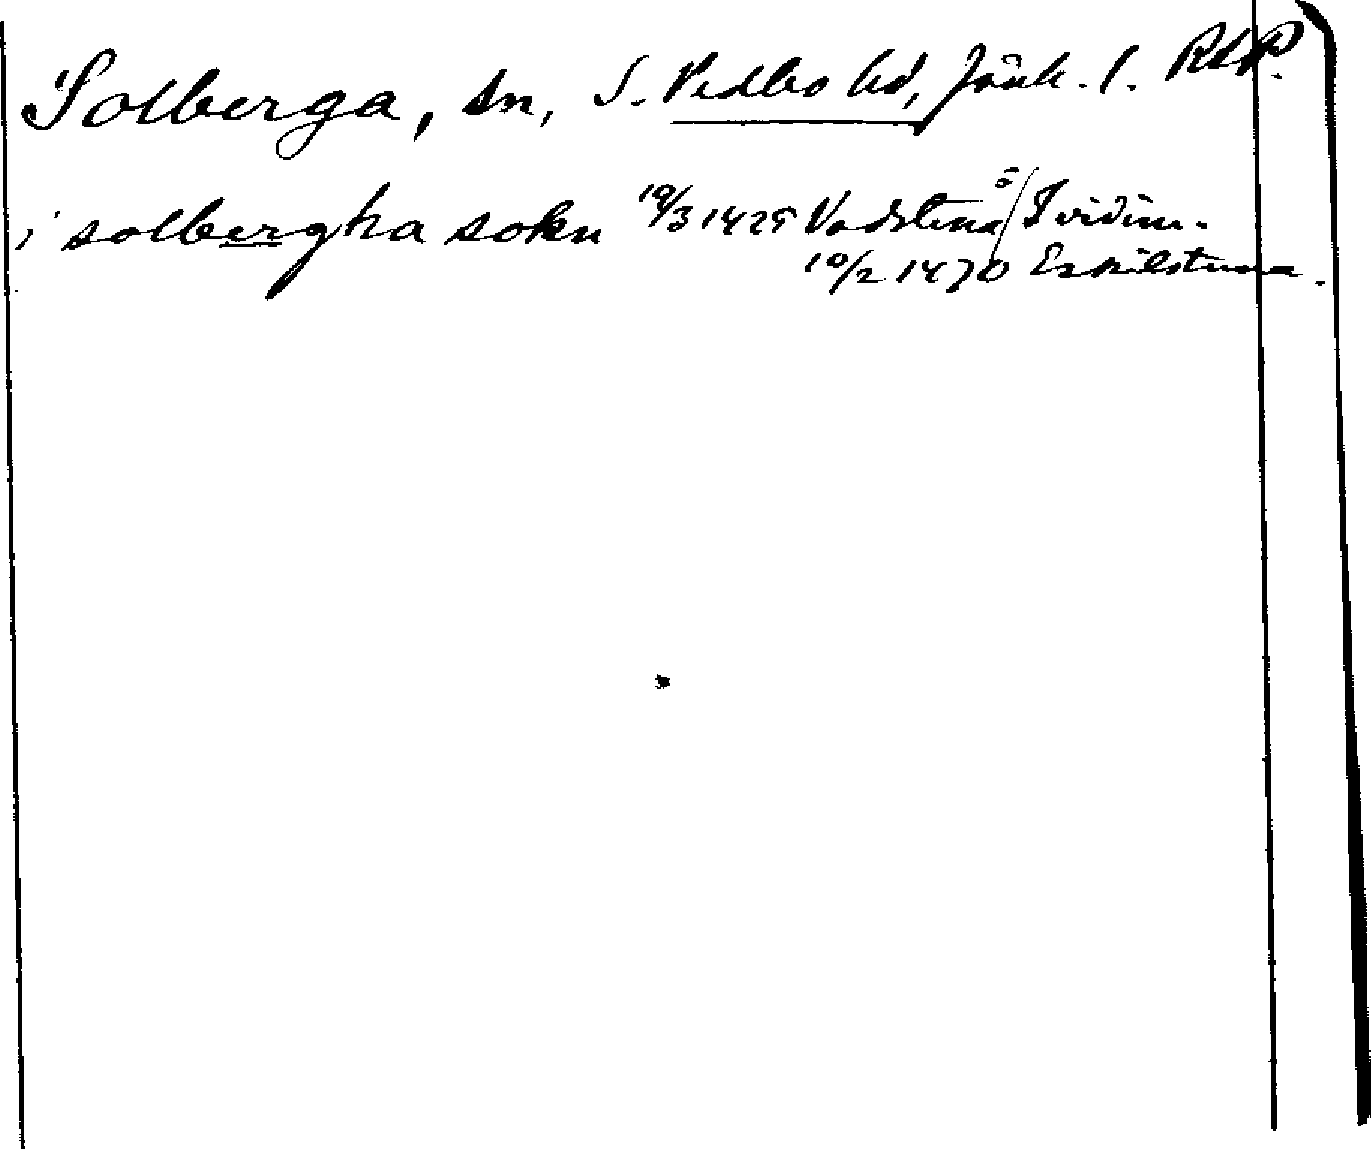 Solberga, sn, S. Vedbo hd, Jönk. l. RAP.
i solbergha sokn 19/3 1425 Vadstena ö / I vidim.
10/2 1470 Eskilstuna.